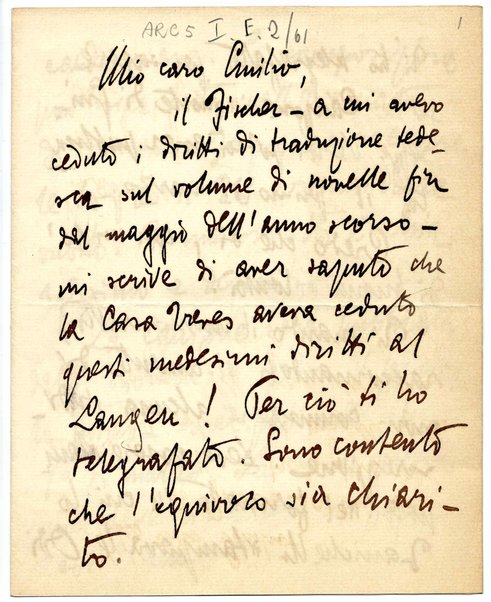 ARC5 I.E.2/61
1
Mio caro Emilio,
il Fischer – a cui avevo
ceduto i diritti di traduzione tede-
sca sul volume di novelle fin
dal maggio dell'anno scorso –
mi scrive di aver saputo che
la Casa Treves aveva ceduto
questi medesimi diritti al
Langen! Per ciò ti ho
telegrafato. Sono contento
che l'equivoco sia chiari-
to.